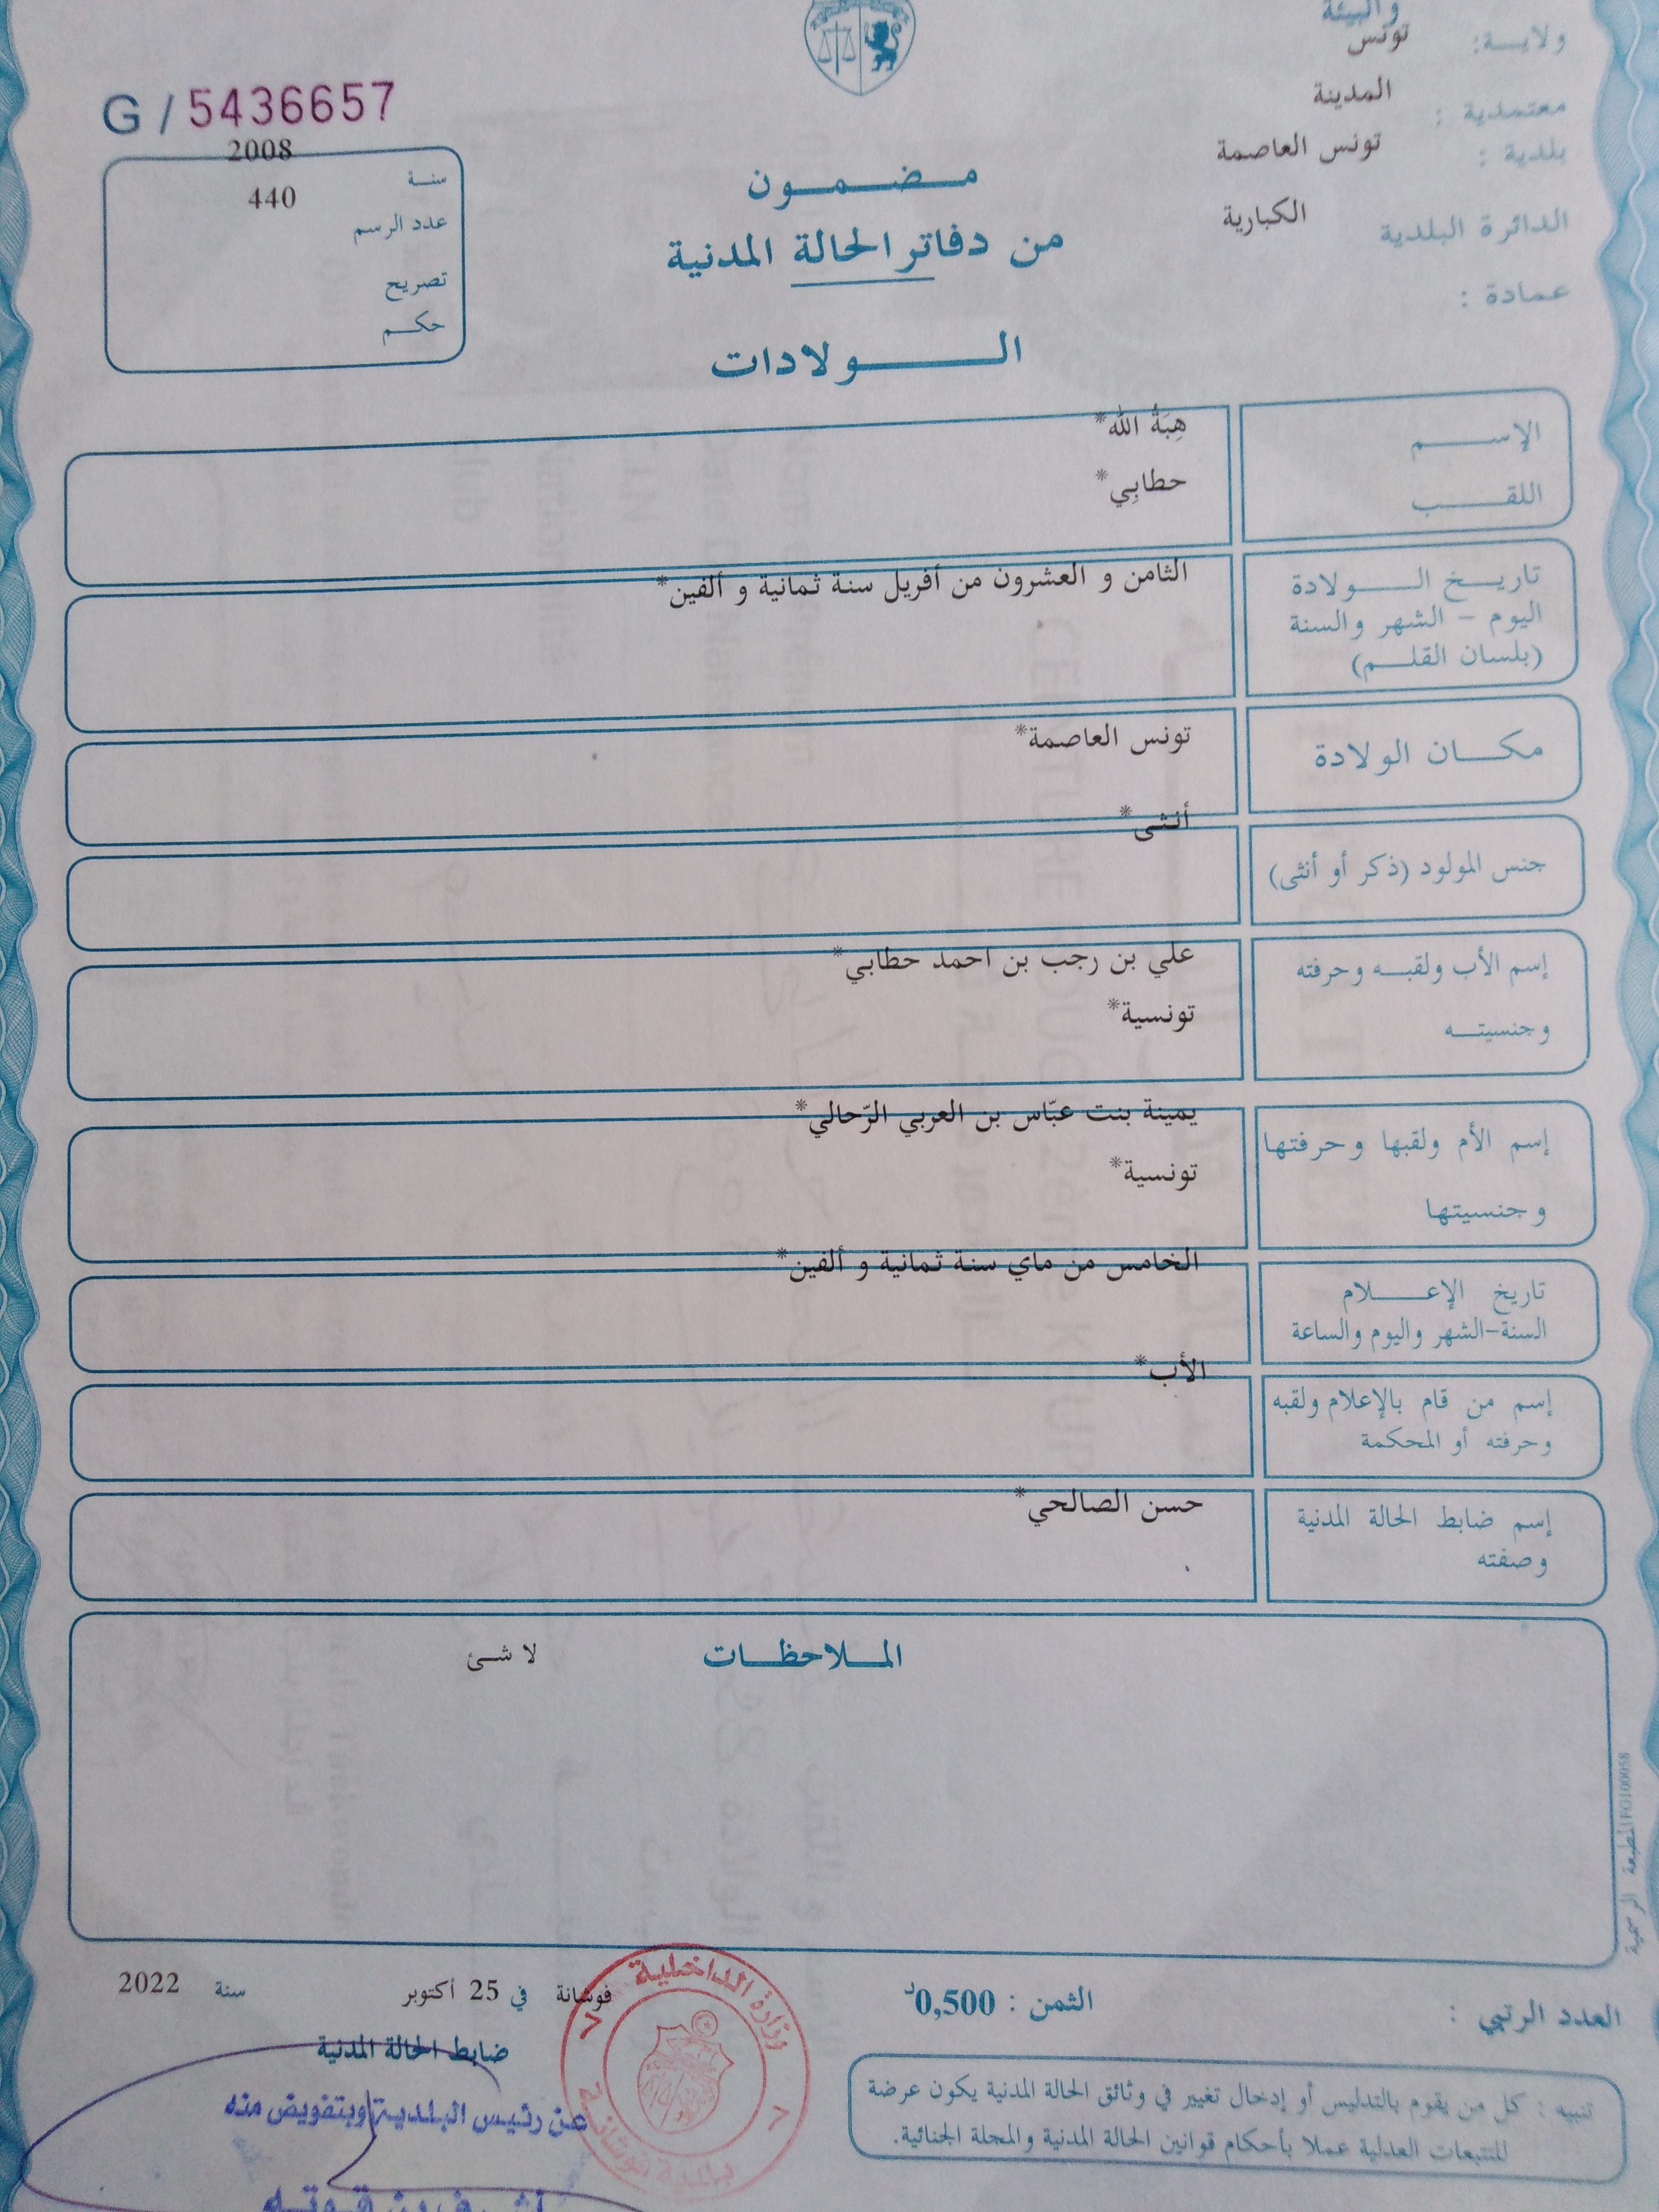 والبيئة
ولايـــة: تونس
معتمدية : المدينة
بلدية : تونس العاصمة
الدائرة البلدية الكبارية
عمادة :
G / 5436657
سنة 2008
عدد الرسم 440
تصريح
حكم
مضمون
من دفاتر الحالة المدنية
الولادات
الإسم هِبَةُ الله*
اللقب حطابِي*
تاريخ الولادة الثامن و العشرون من أفريل سنة ثمانية و ألفين*
اليوم – الشهر والسنة
(بلسان القلم)
مكان الولادة تونس العاصمة*
جنس المولود (ذكر أو أنثى) أنثى*
إسم الأب ولقبه وحرفته علي بن رجب بن احمد حطابي*
وجنسيته تونسية*
إسم الأم ولقبها وحرفتها يمينة بنت عبّاس بن العربي الرّحالي*
وجنسيتها تونسية*
تاريخ الإعلام الخامس من ماي سنة ثمانية و ألفين*
السنة-الشهر واليوم والساعة
إسم من قام بالإعلام ولقبه الأب*
وحرفته أو المحكمة
إسم ضابط الحالة المدنية حسن الصالحي*
وصفته
الملاحظات لا شئ
المطبعة الرسمية
العدد الرتبي :
الثمن : 0,500د
فوشانة في 25 أكتوبر سنة 2022
ضابط الحالة المدنية
عن رئيس البلدية وبتفويض منه
وزارة الداخلية
بلدية فوشانة
تنبيه : كل من يقوم بالتدليس أو إدخال تغيير في وثائق الحالة المدنية يكون عرضة
للتتبعات العدلية عملا بأحكام قوانين الحالة المدنية والمجلة الجنائية.